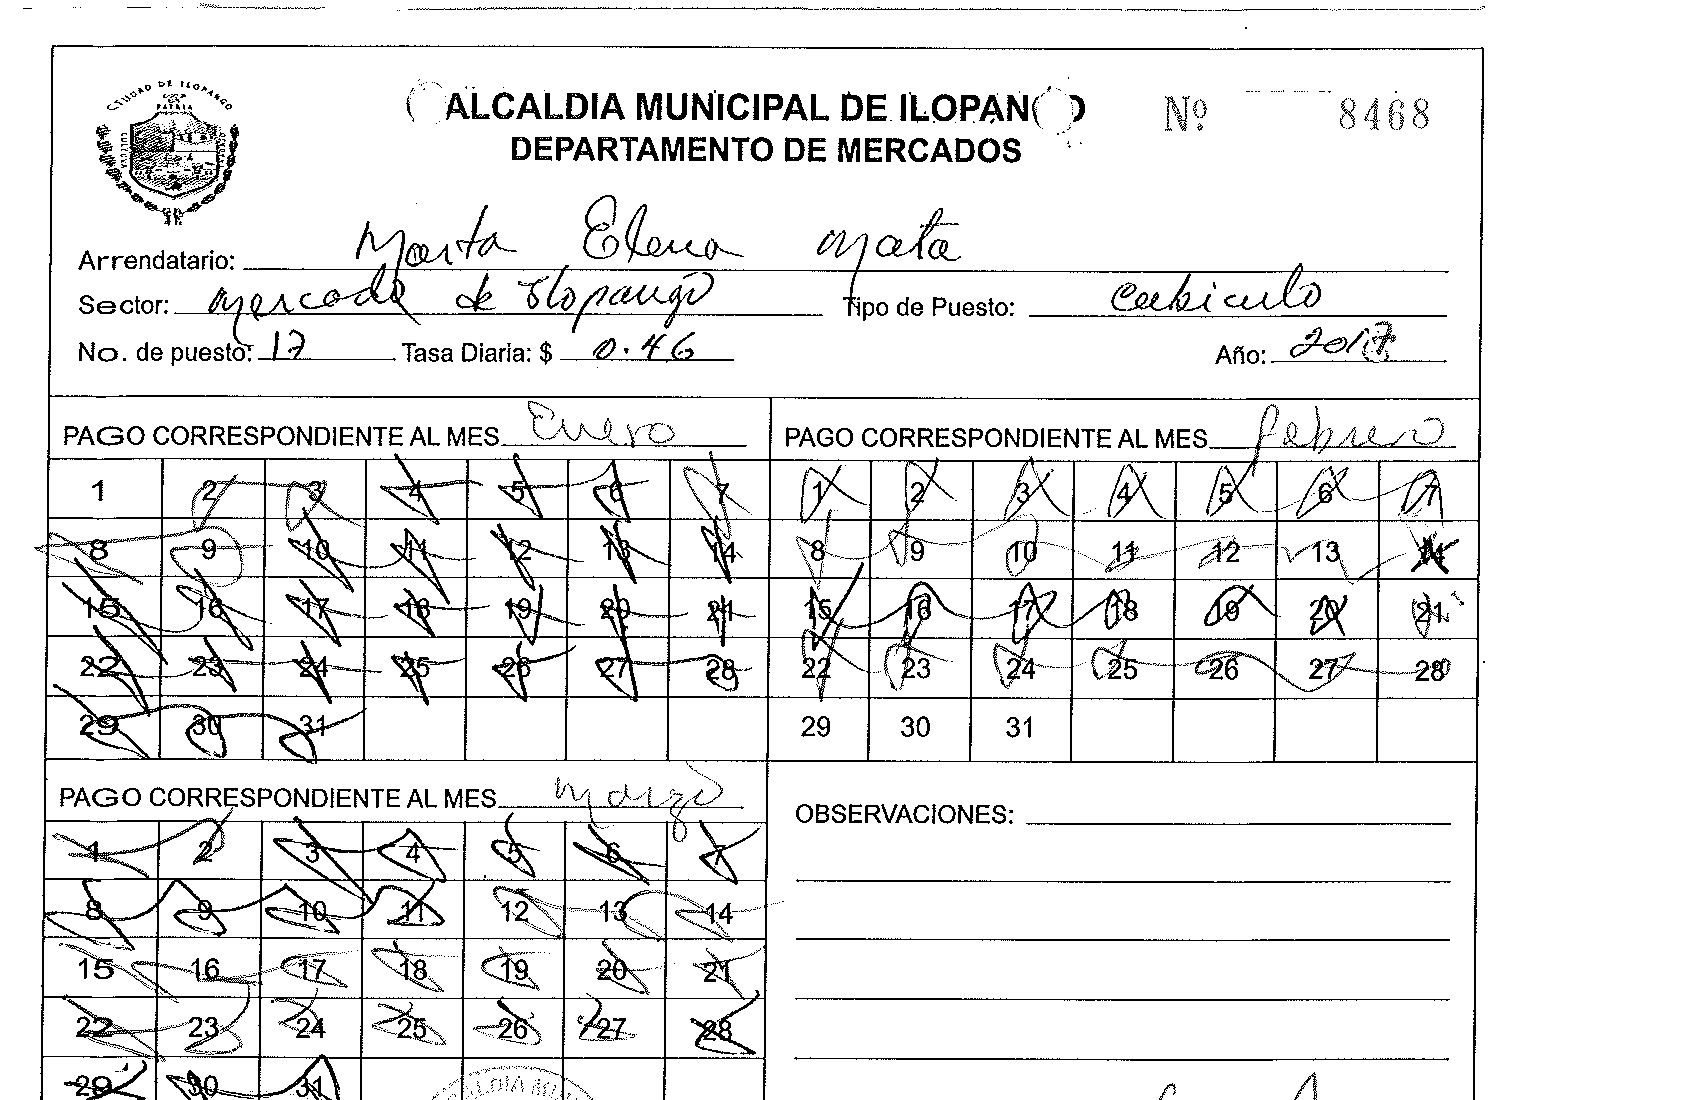 CIUDAD DE ILOPANGO
PATRIA
ALCALDIA MUNICIPAL DE ILOPANGO Nº 8468
DEPARTAMENTO DE MERCADOS
Arrendatario: Marta Elena Mata
Sector: Mercado de Ilopango Tipo de Puesto: Cubiculo
No. de puesto: 17 Tasa Diaria: $ 0.46 Año: 2017
PAGO CORRESPONDIENTE AL MES Enero
1 2 3 4 5 6 7
8 9 10 11 12 13 14
15 16 17 18 19 20 21
22 23 24 25 26 27 28
29 30 31
PAGO CORRESPONDIENTE AL MES febrero
1 2 3 4 5 6 7
8 9 10 11 12 13 14
15 16 17 18 19 20 21
22 23 24 25 26 27 28
29 30 31
PAGO CORRESPONDIENTE AL MES Marzo
1 2 3 4 5 6 7
8 9 10 11 12 13 14
15 16 17 18 19 20 21
22 23 24 25 26 27 28
29 30 31
OBSERVACIONES: